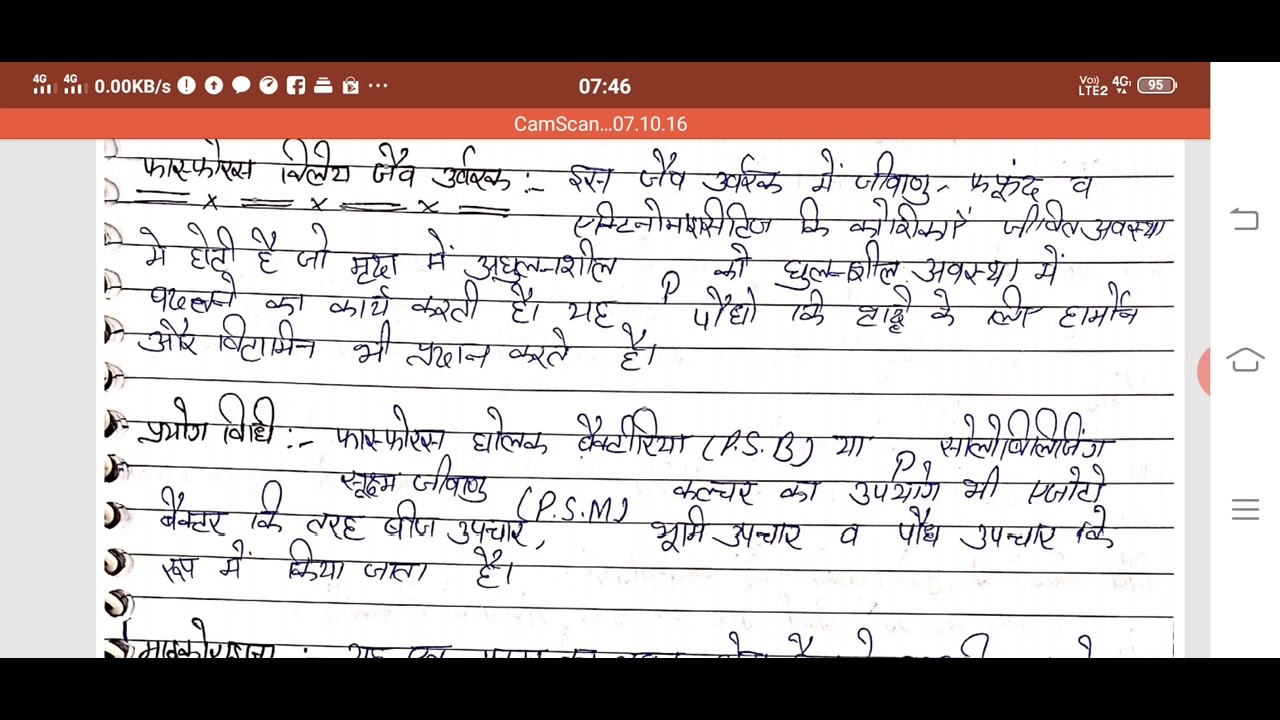 4G 4G 0.00KB/s 07:46 Vo)) LTE2 4G 95
CamScan...07.10.16
फास्फोरस विलेय जैव उर्वरक :- इस जैव उर्वरक में जीवाणु, फफूंद व
एक्टिनोमाइसीटिज कि कोशिकाएं जीवित अवस्था
में होती है जो मृदा में अघुलनशील P को घुलनशील अवस्था में
बदलने का कार्य करती है। यह पौधो कि वृद्धि के लिए हार्मोन
और विटामिन भी प्रदान करते है।
प्रयोग विधि :- फास्फोरस घोलक बैक्टीरिया (P.S.B) या P सोलोबिलिजिंग
सूक्ष्म जीवाणु (P.S.M) कल्चर का उपयोग भी एजोटो
बैक्टर कि तरह बीज उपचार, भूमि उपचार व पौध उपचार के
रूप में किया जाता है।